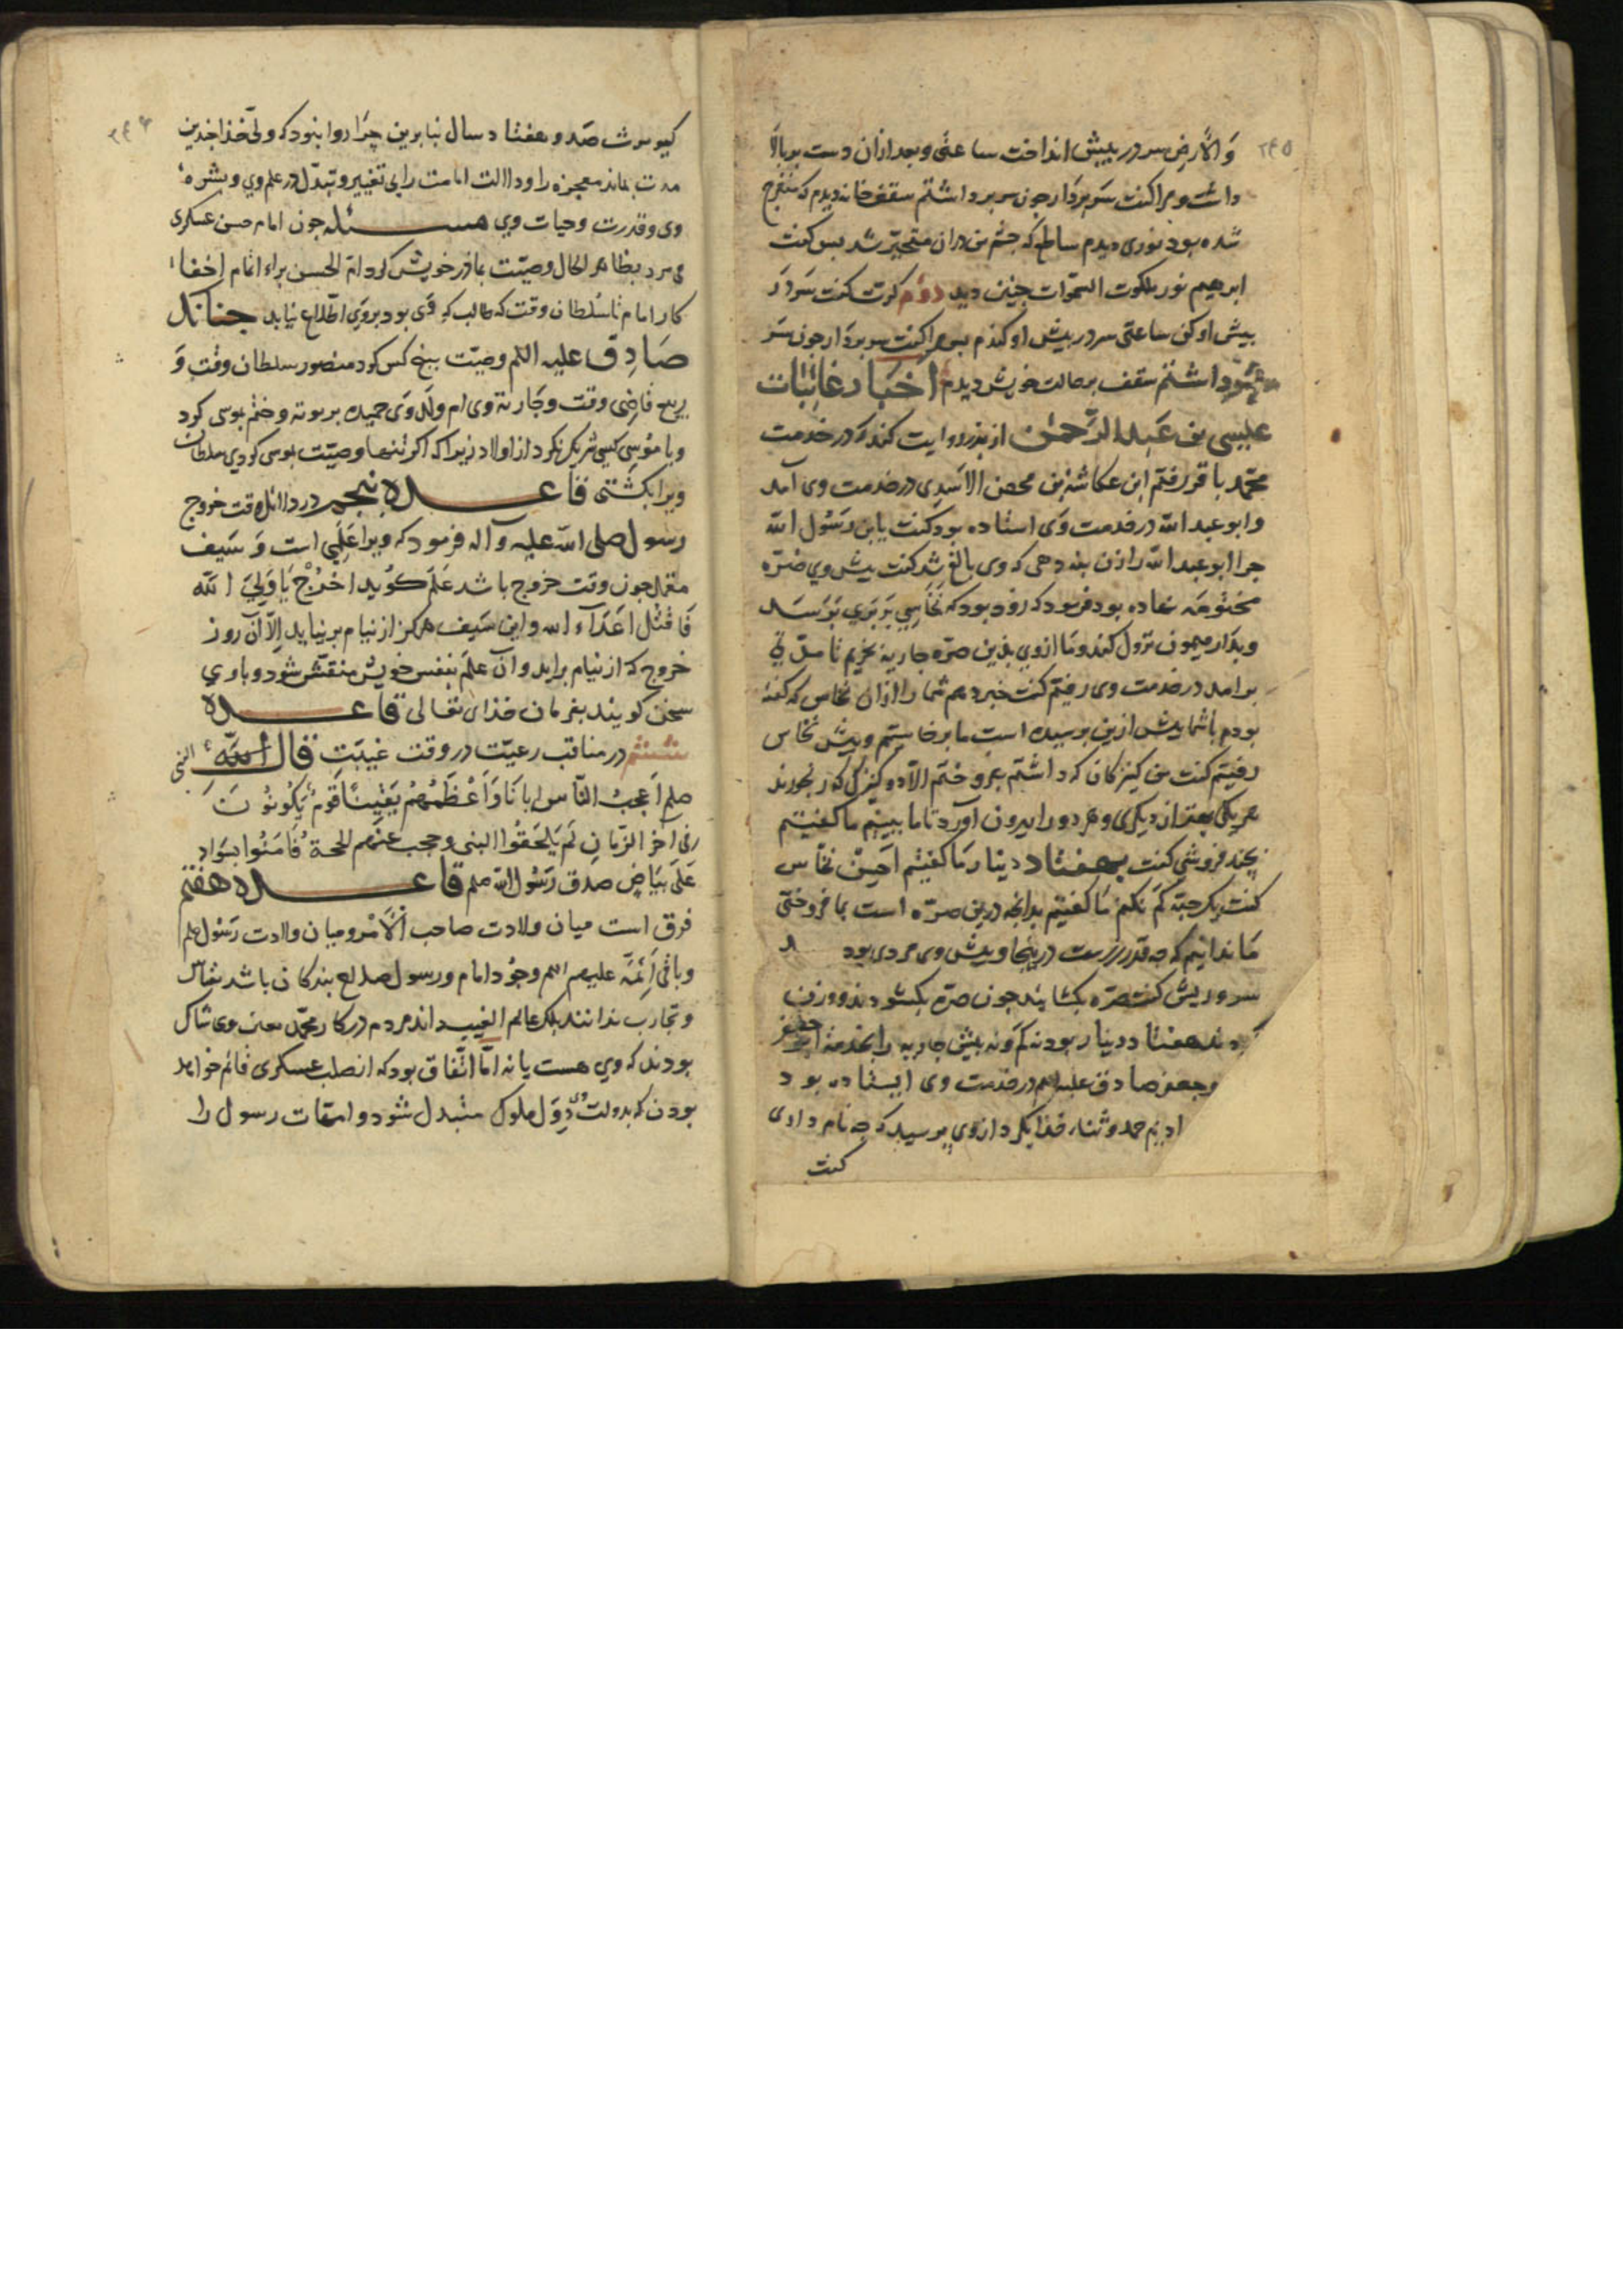 ۲۴۵
وَالأرضِ سر در پیش انداخت ساعتی و بعد ازان دست بر بالا
داشت و مرا کفت سَر بردار جون سر برداشتم سقف خانه دیدم که منفرج
شده بود نوری دیدم ساطع که جشم من دران متحیّر شد بس کفت
ابرهیم نور ملکوت السّموات جنین دید دوم کرّت کفت سَر دَر
بیش اوکن ساعتی سر در بیش اوکندم بس مرا کفت سر بردار جون سَر
برداشتم سقف بر حالت خویش دیدم اخبار غائبات
عیسی بن عَبد الرَّحمٰن از بذر روایت کند که در خدمت
محمّد باقر رفتم ابن عکاشة بن محصن الاسَدِی در خدمت وی آمد
و ابو عبد الله در خدمت وَی استاده بود کفت یابن رَسُول الله
جرا ابو عبد الله را زن بنه دهی که وی بالغ شد کفت بیش وی صُرّه
مختومَه نهاده بود فرمود که زود بود که نَخّاسِی بَربَری بَرَسَد
و بدَار میمون نزول کند و مَا ازوی بذین صرّه جاریه بخریم تا مدّتی
برامد در خدمت وی رفیتم کفت خبر دهم شما را ازان نخاس که کفته
بودم باشما بیش ازین برسیده است ما برخاستیم و بیش نخّاس
رفیتم کفت من کنیزکان که داشتم بفروختم الّا دو کنیزک که رنجورند
هر یکی بهتر ازان دیکری و هر دو را بیرون آورد تا ما ببینیم ما کفیتم
بچند فروشی کفت بهفتاد دینار مَا کفیتم احسِنْ نخّاس
کفت یک حبّه کَم نکنم مَا کفیتم بدانجه درین صرّه است بما فروختی
مَا ندانیم که جه قدر زرست در ینجا و بیش وی مردی بود
سر و ریش کفت صرّه بکشایند جون صرّه بکشودند و وزن
کردند هفتاد دینار بود نه کَم و نه بیش جاریه را بخدمت ابو جعفر
و جعفر صادق علیه السلم در خدمت وی ایستاده بود
ادیم حمد و ثناء خذا بکرد ازوی برسید که جه نام داری
کفت
۲۴۶
کیومرث صَد و هفتاد سال بنابرین چرَا روا بنود که ولی خذا جندین
مدت بماند معجزه را و دلالت امامت را بی تغییر و تبدّل در علم وی و بشره
وی و قدرت و حیات وی مسئله جون امام حسن عسکری
می مرد بظاهر الحال وصیّت بماذر خویش کرد امّ الحسن براء اتمام اخفاء
کار امام تا سُلطان وقت که طالب که وَی بود بروی اطّلاع نیابد جنانک
صَادِق علیه السلم وصیّت ببنج کس کرد منصور سلطان وقت و
ربیع قاضِی وقت و جَاریهٔ وی ام ولد وَی حمیده بربریه و ختم بموسی کرد
و با مُوسِی کسی شریک نکرد از اولاد زیرا که اکر تنها وصیّت بموسی کردی سلطان
ویرا بکشتی قاعده بنجم در دلائل وقت خروج
رسول صلی الله علیه و آله فرمود که ویرا عَلَمی است وَ سَیف
مغمد جون وقت خروج باشد عَلَم کوید اخْرُجْ یَا وَلِیَّ الله
فَاقتُل اَعدَآء الله و این سَیف هرکز از نیام برنیاید اِلّا آن روز
خروج که از نیام براید و آن عَلَم بنفس خویش منقّش شود و با وی
سخن کویند بفرمان خذای تعالی قاعده
ششم در مناقب رعیّت در وقت غیبَتِ قال النبی
صلعم اَعجبُ النّاس ایمانًا وَ اَعْظَمُهُم یَقِینًا قَومٌ یَکُونُونَ
فی اخر الزّمانِ لَم یَلحَقُوا النبی و حجب عنهم الحجة فَامَنُوا بسَوادٍ
عَلَی بَیَاضٍ صَدق رَسُول الله صلعم قاعده هفتم
فرق است میان ولادت صاحب الاَمر و میان ولادت رَسُول صلعم
و باقی اَئمَّه علیهم السلم وجُود امام و رسول صلاح بندکان باشد بقیاس
و تجارب ندانند بلکه عالم الغیب داند مردم در کار محمّد بعین وی شاک
بودند که وی هست یا نه امّا اتّفاق بود که از صلب عسکری قائم خواهد
بودن که بدولت وی دِوَل ملوک متبدل شود و امقات رسول را